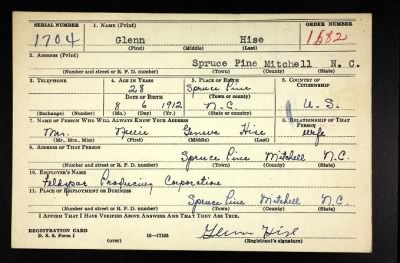 SERIAL NUMBER 1. NAME (Print) ORDER NUMBER
1704 Glenn Hise 1582
(First) (Middle) (Last)
2. ADDRESS (Print)
Spruce Pine Mitchell N. C.
(Number and street or R. F. D. number) (Town) (County) (State)
3. TELEPHONE 4. AGE IN YEARS 5. PLACE OF BIRTH 6. COUNTRY OF CITIZENSHIP
28 Spruce Pine
DATE OF BIRTH (Town or county)
8 6 1912 N.C. U. S.
(Exchange) (Number) (Mo.) (Day) (Yr.) (State or country)
7. NAME OF PERSON WHO WILL ALWAYS KNOW YOUR ADDRESS 8. RELATIONSHIP OF THAT PERSON
Mrs. Geneva Hise wife
(Mr., Mrs., Miss) (First) (Middle) (Last)
9. ADDRESS OF THAT PERSON
Spruce Pine Mitchell N.C.
(Number and street or R. F. D. number) (Town) (County) (State)
10. EMPLOYER'S NAME
Feldspar Producing Corporation
11. PLACE OF EMPLOYMENT OR BUSINESS
Spruce Pine Mitchell N.C.
(Number and street or R. F. D. number) (Town) (County) (State)
I AFFIRM THAT I HAVE VERIFIED ABOVE ANSWERS AND THAT THEY ARE TRUE.
REGISTRATION CARD
D. S. S. Form 1 16-17105 Glenn Hise
(over) (Registrant's signature)